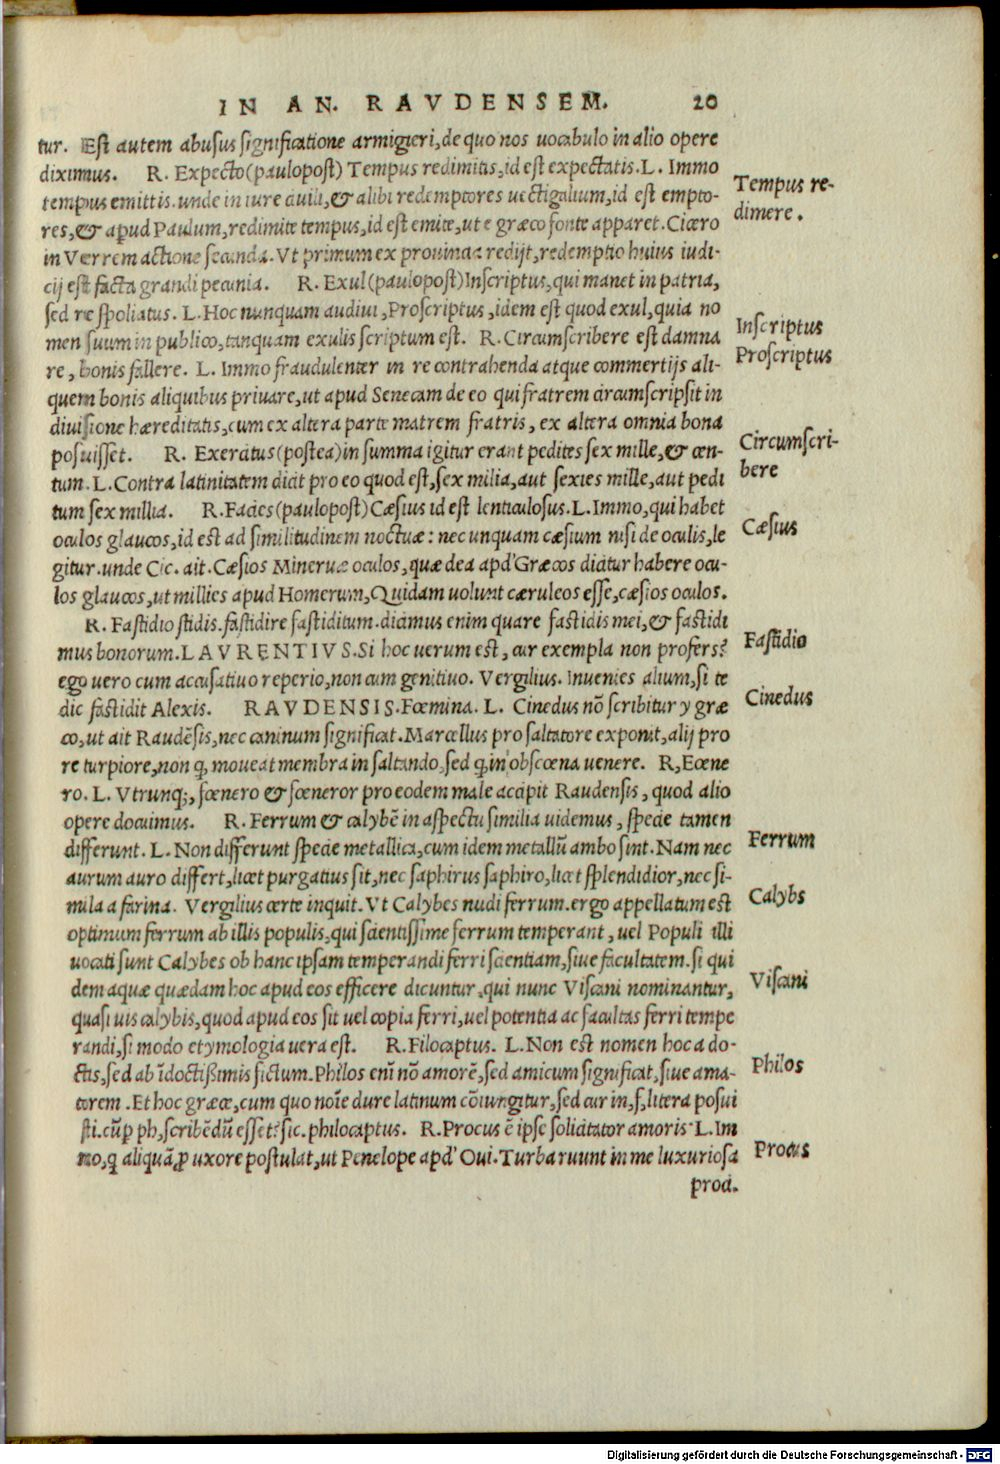 IN AN. RAVDENSEM. 20
tur. Est autem abusus significatione armigeri, de quo nos uocabulo in alio opere
diximus. R. Expecto (paulopost) Tempus redimitis, id est expectatis. L. Immo
Tempus re-
tempus emittis. unde in iure ciuili, & alibi redemptores uectigalium, id est empto-
dimere.
res, & apud Paulum, redimite tempus, id est emite, ut e græco fonte apparet. Cicero
in Verrem actione secunda. Vt primum ex prouincia redijt, redemptio huius iudi-
cij est facta grandi pecunia. R. Exul (paulopost) Inscriptus, qui manet in patria,
sed re spoliatus. L. Hoc nunquam audiui, Proscriptus, idem est quod exul, quia no
Inscriptus
men suum in publico, tanquam exulis scriptum est. R. Circumscribere est damna
Proscriptus
re, bonis fallere. L. Immo fraudulenter in re contrahenda atque commertijs ali-
quem bonis aliquibus priuare, ut apud Senecam de eo qui fratrem circumscripsit in
diuisione hæreditatis, cum ex altera parte matrem fratris, ex altera omnia bona
Circumscri-
posuisset. R. Exercitus (postea) in summa igitur erant pedites sex mille, & cen-
bere
tum. L. Contra latinitatem dicit pro eo quod est, sex milia, aut sexies mille, aut pedi
tum sex millia. R. Facies (paulopost) Cæsius id est lenticulosus. L. Immo, qui habet
Cæsius
oculos glaucos, id est ad similitudinem noctuæ: nec unquam cæsium nisi de oculis, le
gitur. unde Cic. ait. Cæsios Mineruæ oculos, quæ dea apd' Græcos dicitur habere ocu-
los glaucos, ut millies apud Homerum, Quidam uolunt cæruleos esse, cæsios oculos.
R. Fastidio stidis. fastidire fastiditum. dicimus enim quare fastidis mei, & fastidi
Fastidio
mus bonorum. LAVRENTIVS. Si hoc uerum est, cur exempla non profers?
ego uero cum accusatiuo reperio, non cum genitiuo. Vergilius. Inuenies alium, si te
Cinedus
dic fastidit Alexis. RAVDENSIS. Fœmina. L. Cinedus nō scribitur y græ
co, ut ait Raudēsis, nec caninum significat. Marcellus pro saltatore exponit, alij pro
re turpiore, non q, moueat membra in saltando, sed q, in obscœna uenere. R, Eœne
ro. L. Vtrunq;, fœnero & fœneror pro eodem male accipit Raudensis, quod alio
opere docuimus. R. Ferrum & calybē in aspectu similia uidemus, specie tamen
Ferrum
differunt. L. Non differunt specie metallica, cum idem metallū ambo sint. Nam nec
aurum auro differt, licet purgatius sit, nec saphirus saphiro, licet splendidior, nec si-
Calybs
mila a farina. Vergilius certe inquit. Vt Calybes nudi ferrum. ergo appellatum est
optimum ferrum ab illis populis, qui scientissime ferrum temperant, uel Populi illi
uocati sunt Calybes ob hanc ipsam temperandi ferri scientiam, siue facultatem. si qui
Viscani
dem aquæ quædam hoc apud eos efficere dicuntur, qui nunc Viscani nominantur,
quasi uis calybis, quod apud eos sit uel copia ferri, uel potentia ac facultas ferri tempe
randi, si modo etymologia uera est. R. Filocaptus. L. Non est nomen hoc a do-
Philos
ctis, sed ab īdoctißimis fictum. Philos enī nō amorē, sed amicum significat, siue ama-
torem. Et hoc græce, cum quo noīe dure latinum cōiungitur, sed cur in, f, litera posui
sti. cū p ph, scribēdū esset? sic. philocaptus. R. Procus ē ipse solicitator amoris. L. Im
Procus
mo, q aliquā p uxore postulat, ut Penelope apd' Oui. Turba ruunt in me luxuriosa
proci.
Digitalisierung gefördert durch die Deutsche Forschungsgemeinschaft - DFG